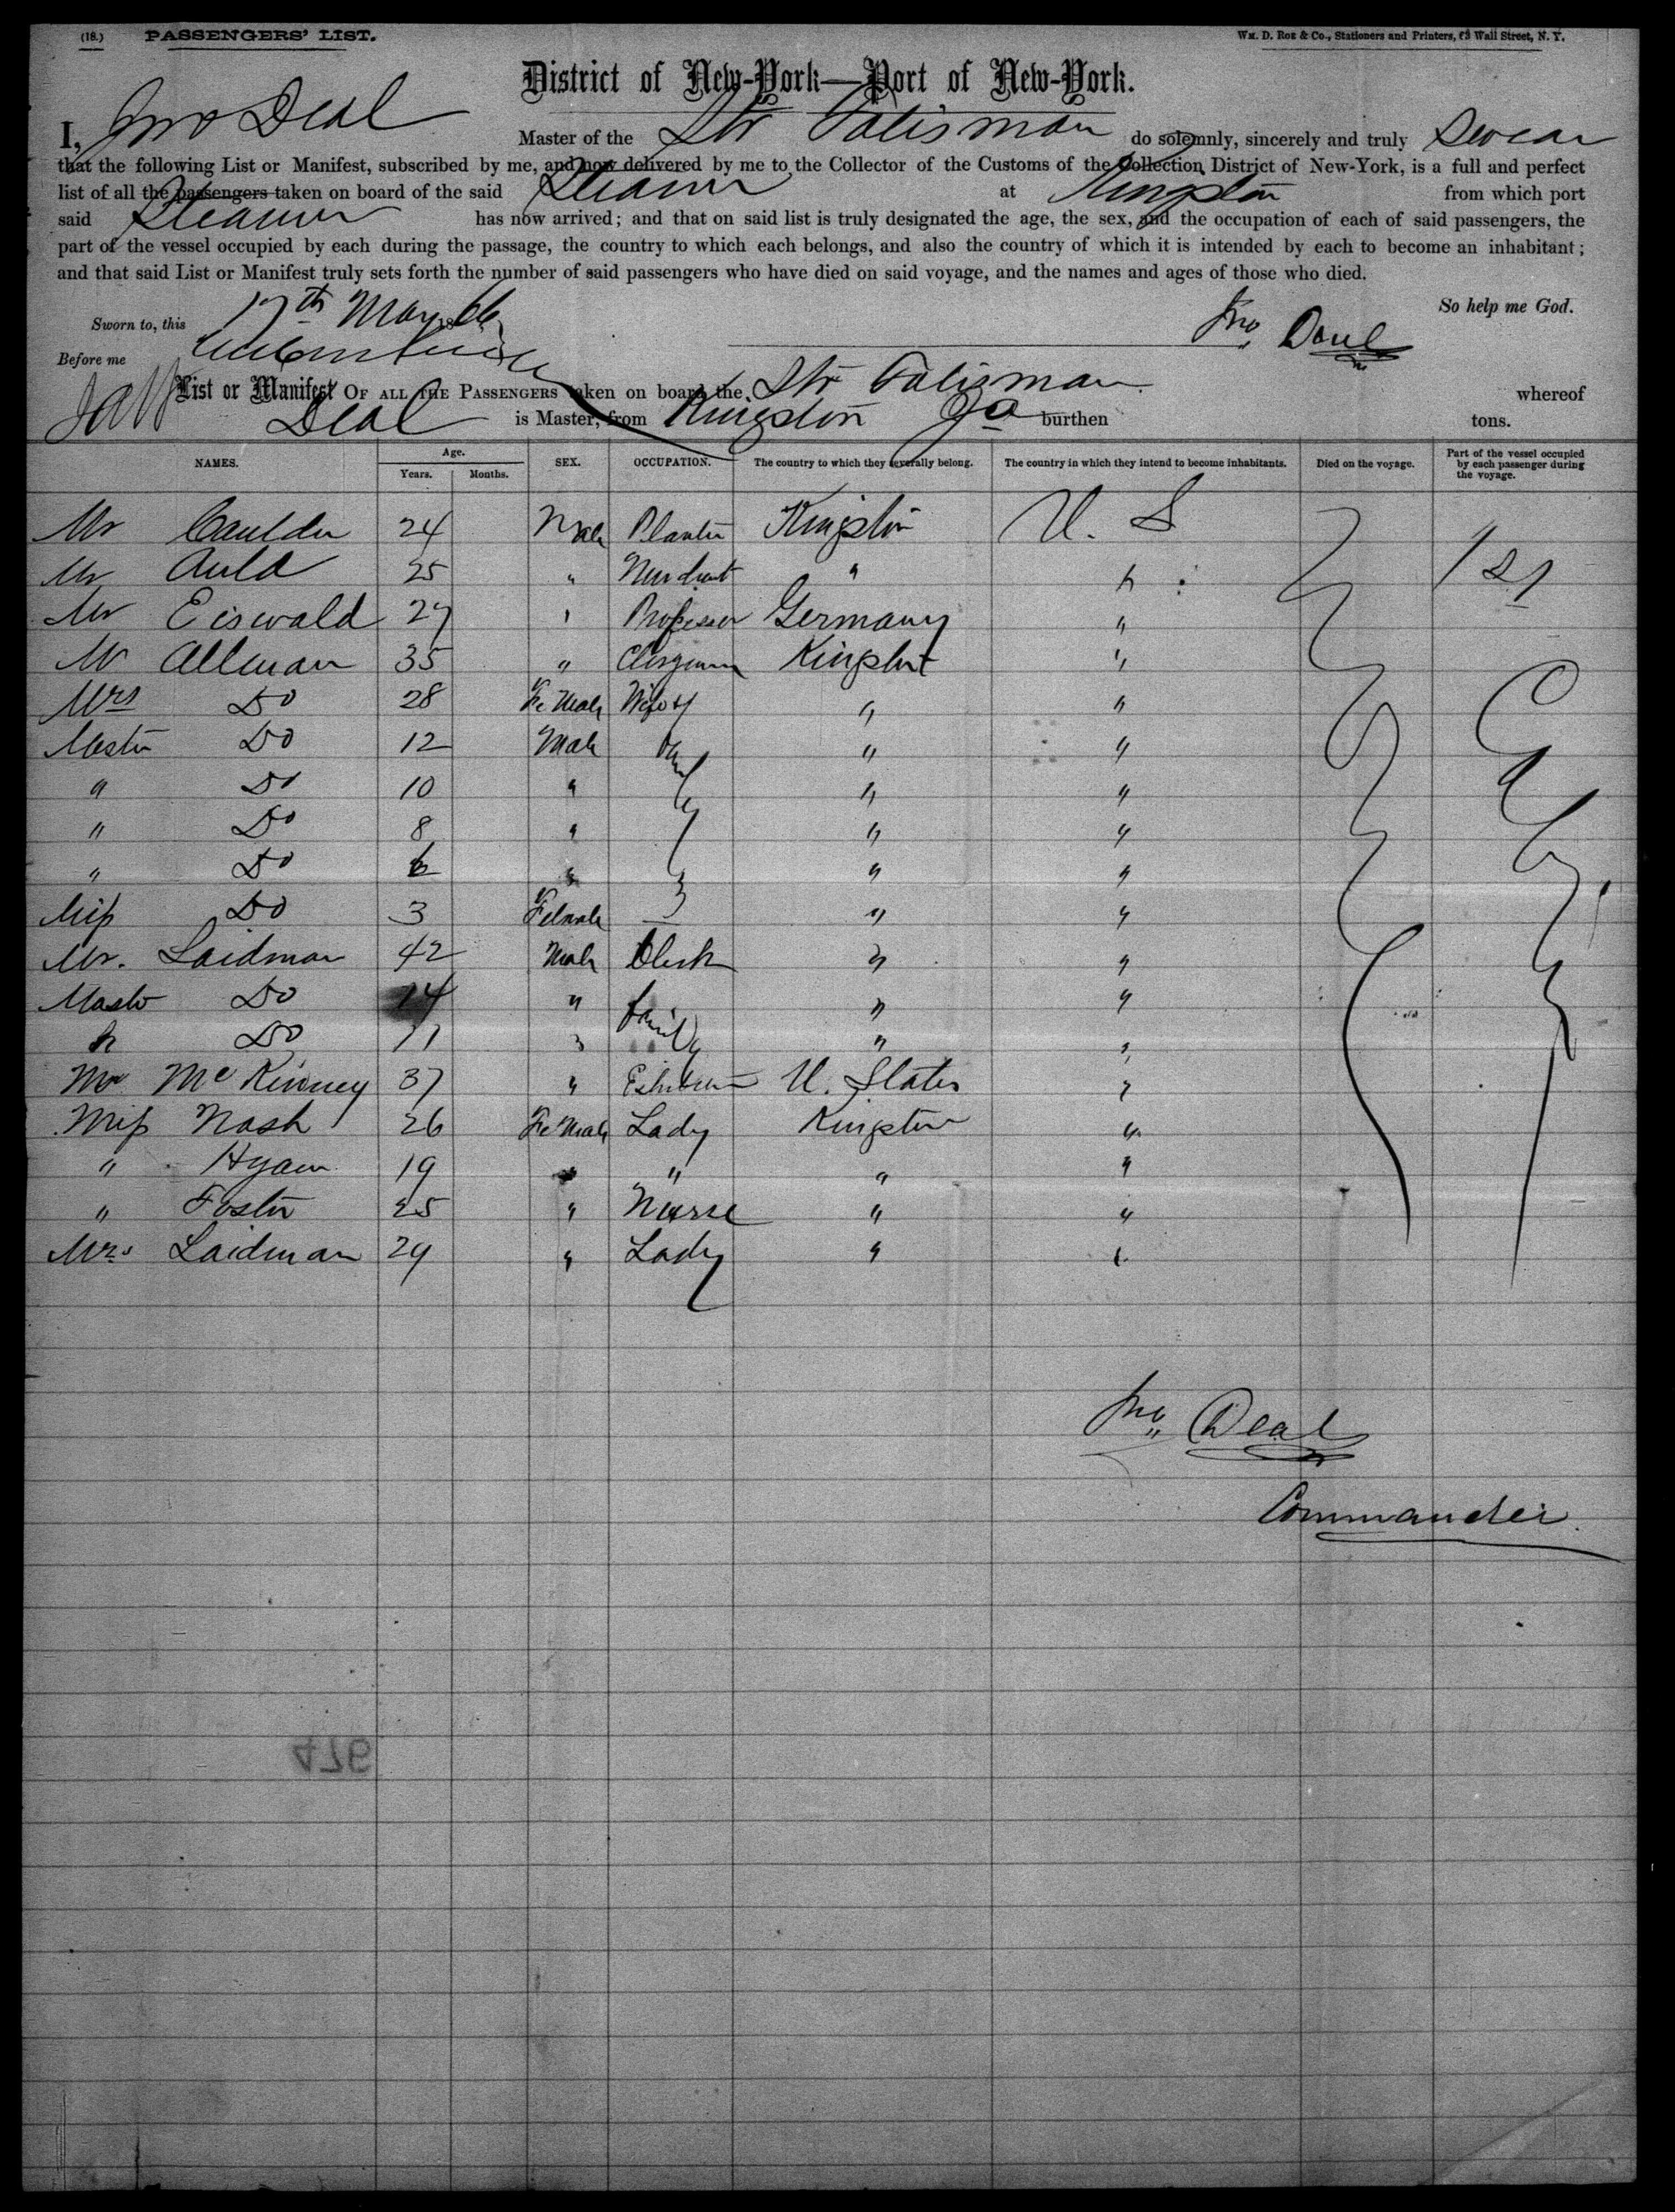 (18.) PASSENGERS' LIST. Wm. D. Roe & Co., Stationers and Printers, Wall Street, N. Y.
District of New-York—Port of New-York.
I, Jno Deal Master of the Str Talisman do solemnly, sincerely and truly Swear
that the following List or Manifest, subscribed by me, and now delivered by me to the Collector of the Customs of the Collection District of New-York, is a full and perfect
list of all the passengers taken on board of the said Steamer at Kingston from which port
said Steamer has now arrived; and that on said list is truly designated the age, the sex, and the occupation of each of said passengers, the
part of the vessel occupied by each during the passage, the country to which each belongs, and also the country of which it is intended by each to become an inhabitant;
and that said List or Manifest truly sets forth the number of said passengers who have died on said voyage, and the names and ages of those who died.
So help me God.
Sworn to, this 17th May 186
Jno Deal
Before me
List or Manifest OF ALL THE PASSENGERS taken on board the Str Talisman whereof
Deal is Master, from Kingston Ja burthen tons.
NAMES. Age. Years. Months. SEX. OCCUPATION. The country to which they severally belong. The country in which they intend to become inhabitants. Died on the voyage. Part of the vessel occupied by each passenger during the voyage.
Mr 24 Male Planter Kingston U. S
Mr Auld 25 " Merchant " " 1st
Mr Eiswald 27 " Professor Germany "
Mr Alleman 35 " Clergyman Kingston "
Mrs Do 28 Female Wife & " "
Master Do 12 Male Family " "
" Do 10 " " "
" Do 8 " " "
" Do 6 " " "
Miss Do 3 Female " "
Mr. Laidman 42 Male Clerk " "
Mastr Do 14 " family " "
" Do 11 " " "
Mr McKinney 37 " U. States "
Miss Nash 26 Female Lady Kingston "
" Hyam 19 " " " "
" Foster 25 " Nurse " "
Mrs Laidman 29 " Lady " "
Jno Deal
Commander
476